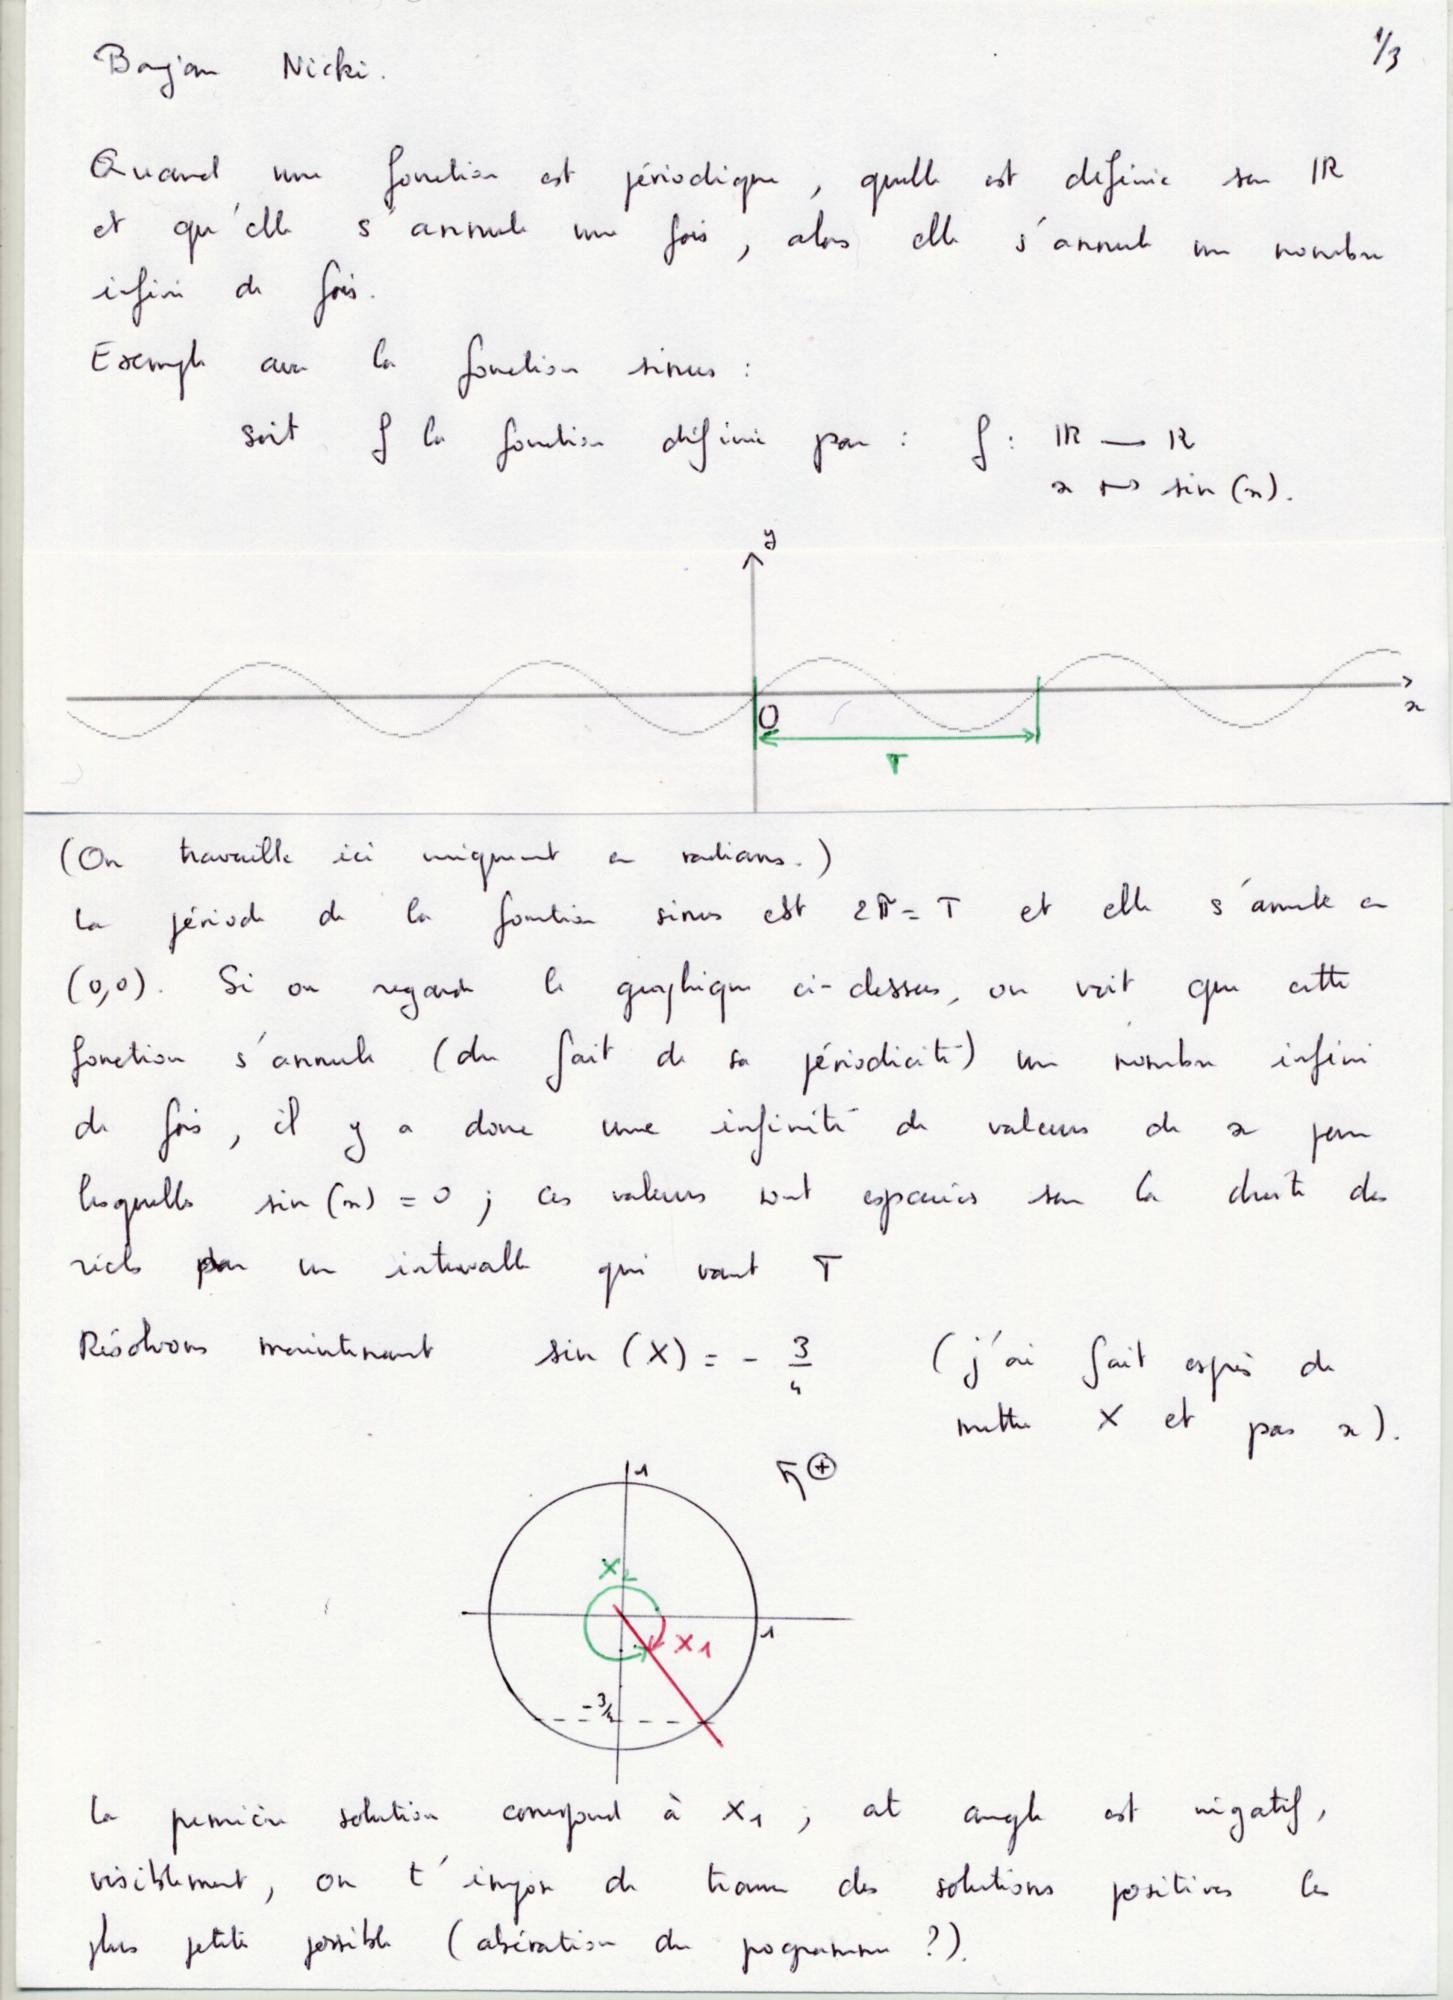 Bonjour Nicki.
1/3
Quand une fonction est périodique, quelle est définie sur ℝ
et qu'elle s'annule une fois, alors elle s'annule un nombre
infini de fois.
Exemple avec la fonction sinus :
soit f la fonction définie par : f : ℝ — ℝ
x ↦ sin (x).
y
x
O
T
(On travaille ici uniquement en radians.)
La période de la fonction sinus est 2π = T et elle s'annule en
(0,0). Si on regarde le graphique ci-dessus, on voit que cette
fonction s'annule (du fait de sa périodicité) un nombre infini
de fois, il y a donc une infinité de valeurs de x pour
lesquelles sin (x) = 0 ; ces valeurs sont espacées sur la droite des
réels par un intervalle qui vaut T
Résolvons maintenant sin (X) = - 3/4 (j'ai fait exprès de
mettre X et pas x).
1
+
X2
X1
1
-3/4
La première solution correspond à X1 ; cet angle est négatif,
visiblement, on t'impose de trouver des solutions positives les
plus petite possible (abération du programme ?).